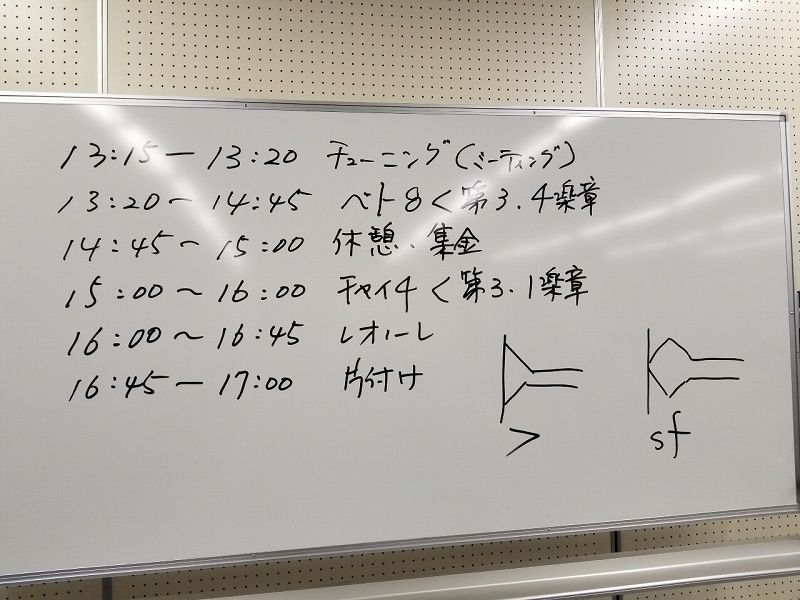 13:15ー13:20 チューニング(ミーティング)
13:20〜14:45 ベト8く第3.4楽章
14:45〜15:00 休憩.集金
15:00〜16:00 チャイ4く第3.1楽章
16:00〜16:45 レオノーレ
16:45ー17:00 片付け
> sf